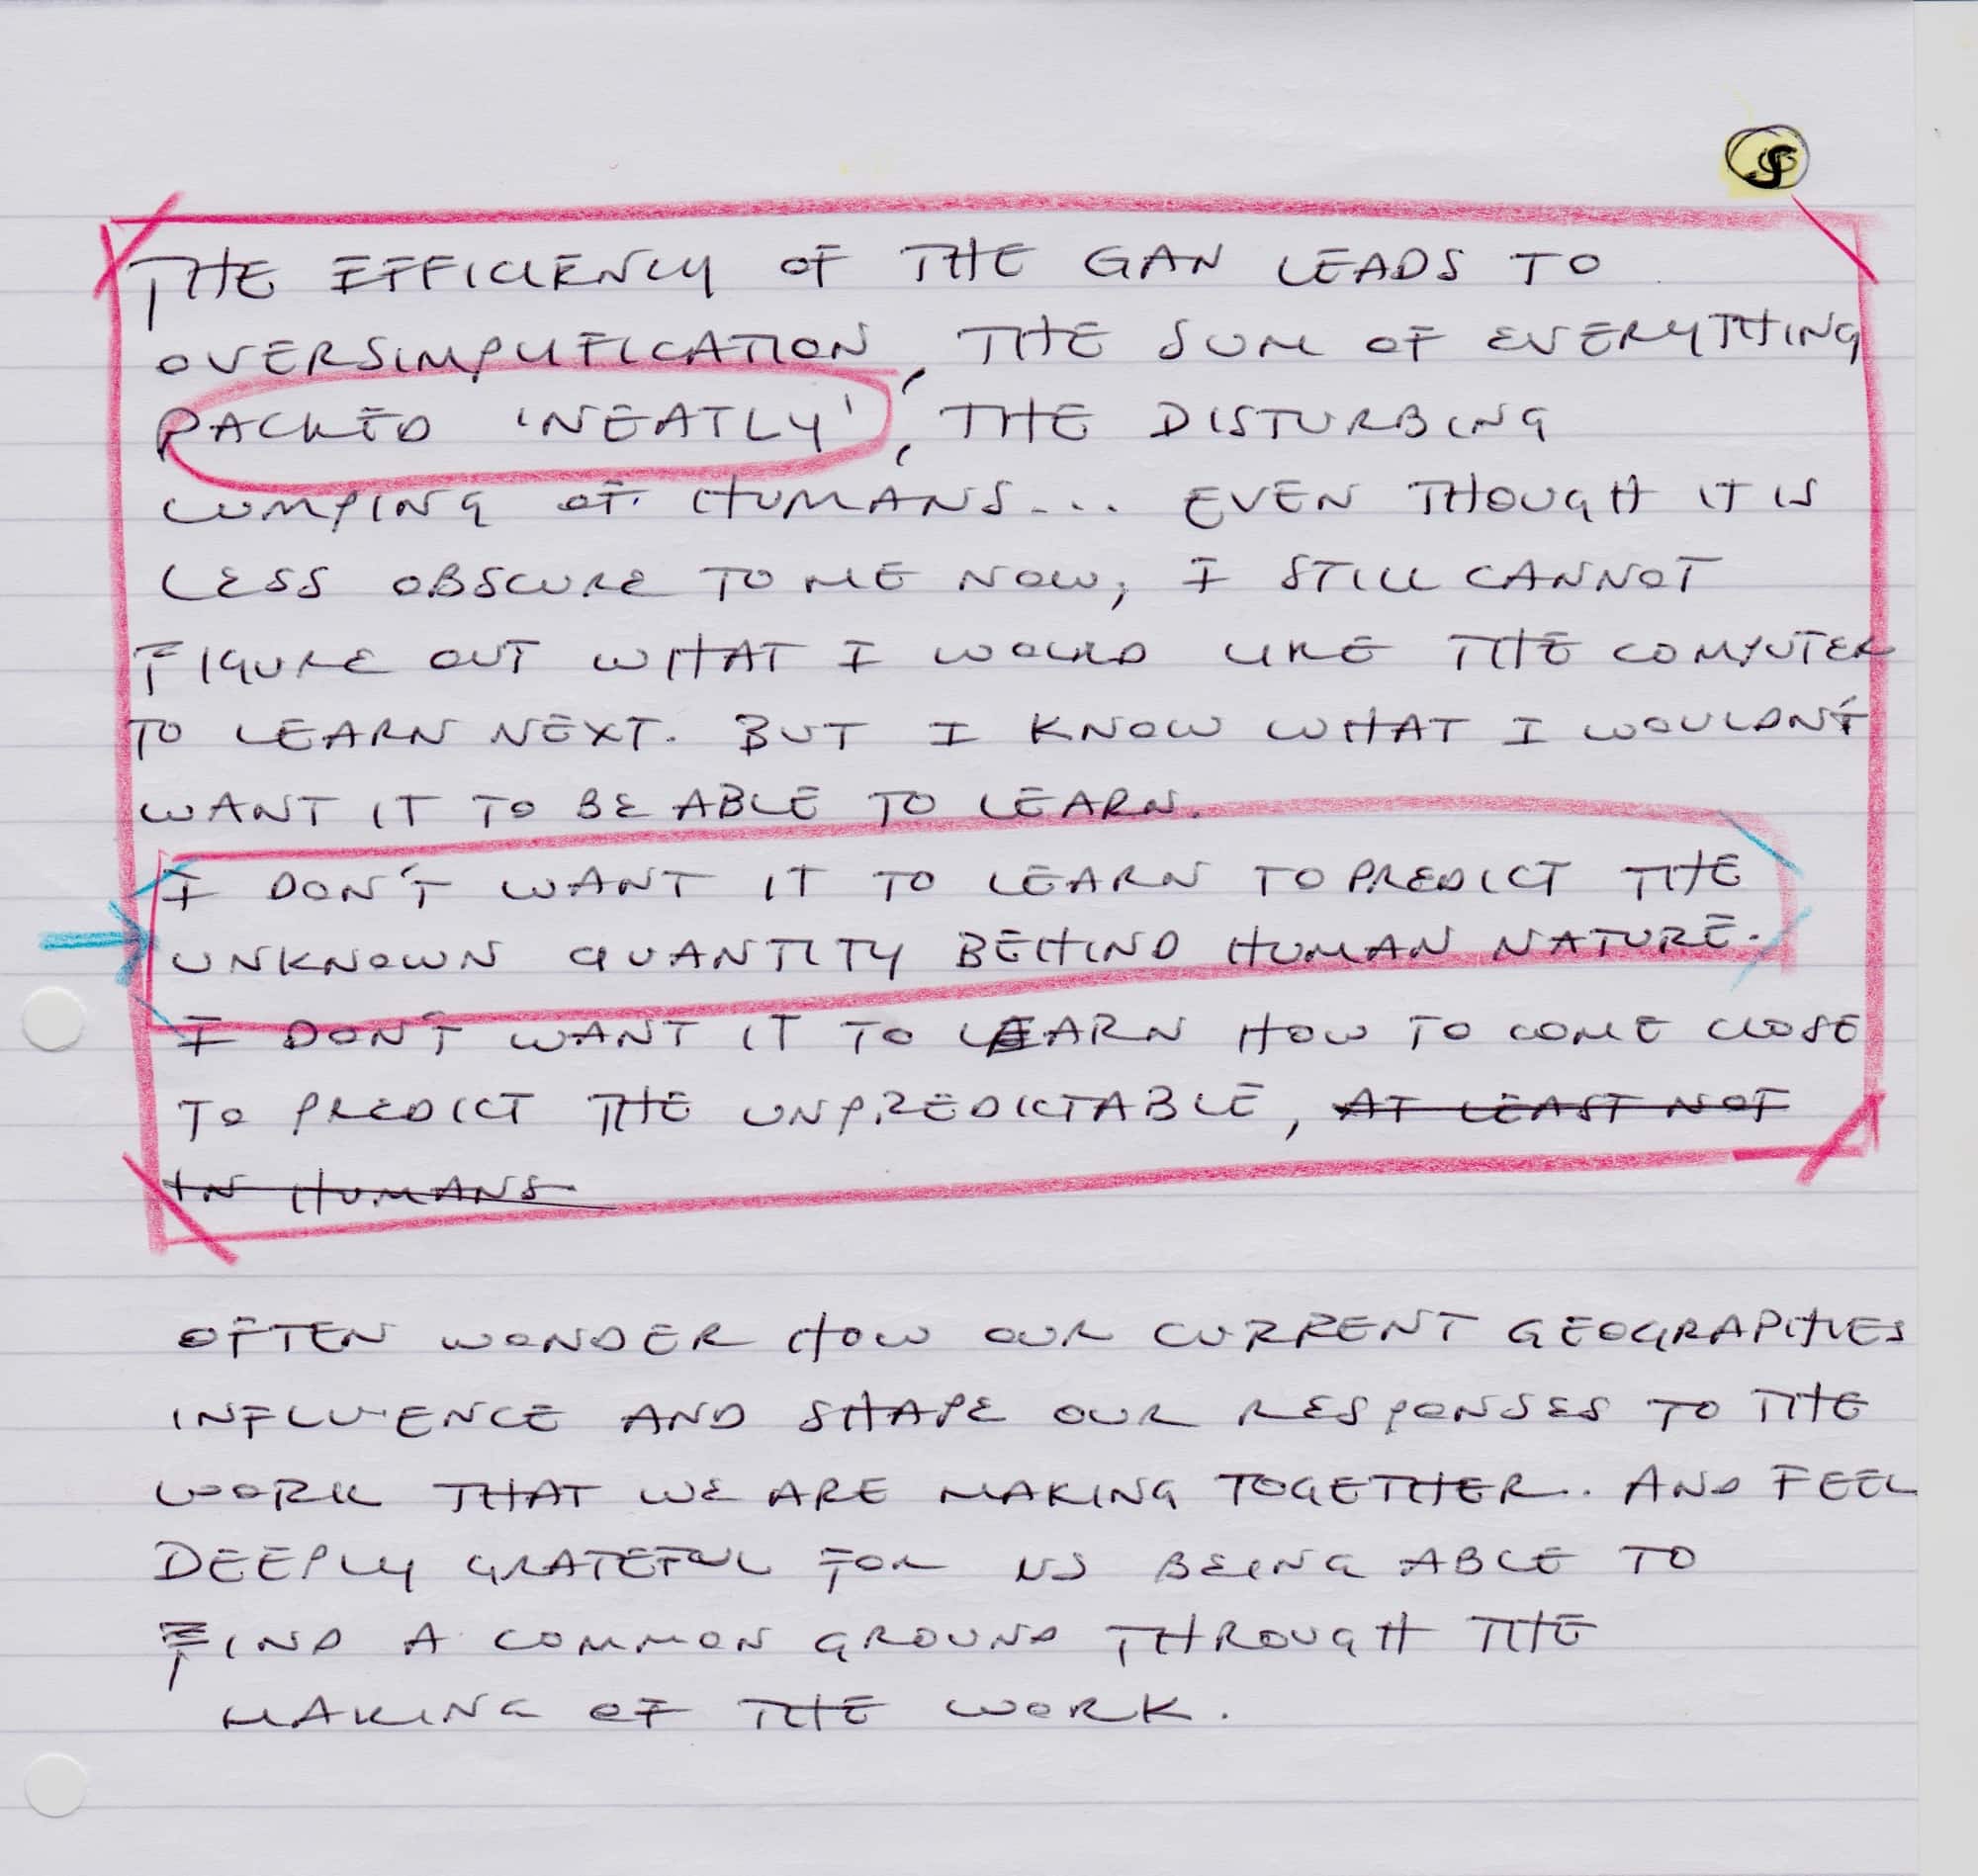 THE EFFICIENCY OF THE GAN LEADS TO
OVERSIMPLIFICATION, THE SUM OF EVERYTHING
PACKED 'NEATLY', THE DISTURBING
LUMPING OF HUMANS... EVEN THOUGH IT IS
LESS OBSCURE TO ME NOW, I STILL CANNOT
FIGURE OUT WHAT I WOULD LIKE THE COMPUTER
TO LEARN NEXT. BUT I KNOW WHAT I WOULDN'T
WANT IT TO BE ABLE TO LEARN.
I DON'T WANT IT TO LEARN TO PREDICT THE
UNKNOWN QUANTITY BEHIND HUMAN NATURE.
I DON'T WANT IT TO LEARN HOW TO COME CLOSE
TO PREDICT THE UNPREDICTABLE, AT LEAST NOT
IN HUMANS
OFTEN WONDER HOW OUR CURRENT GEOGRAPHIES
INFLUENCE AND SHAPE OUR RESPONSES TO THE
WORK THAT WE ARE MAKING TOGETHER.. AND FEEL
DEEPLY GRATEFUL FOR US BEING ABLE TO
FIND A COMMON GROUND THROUGH THE
MAKING OF THE WORK.